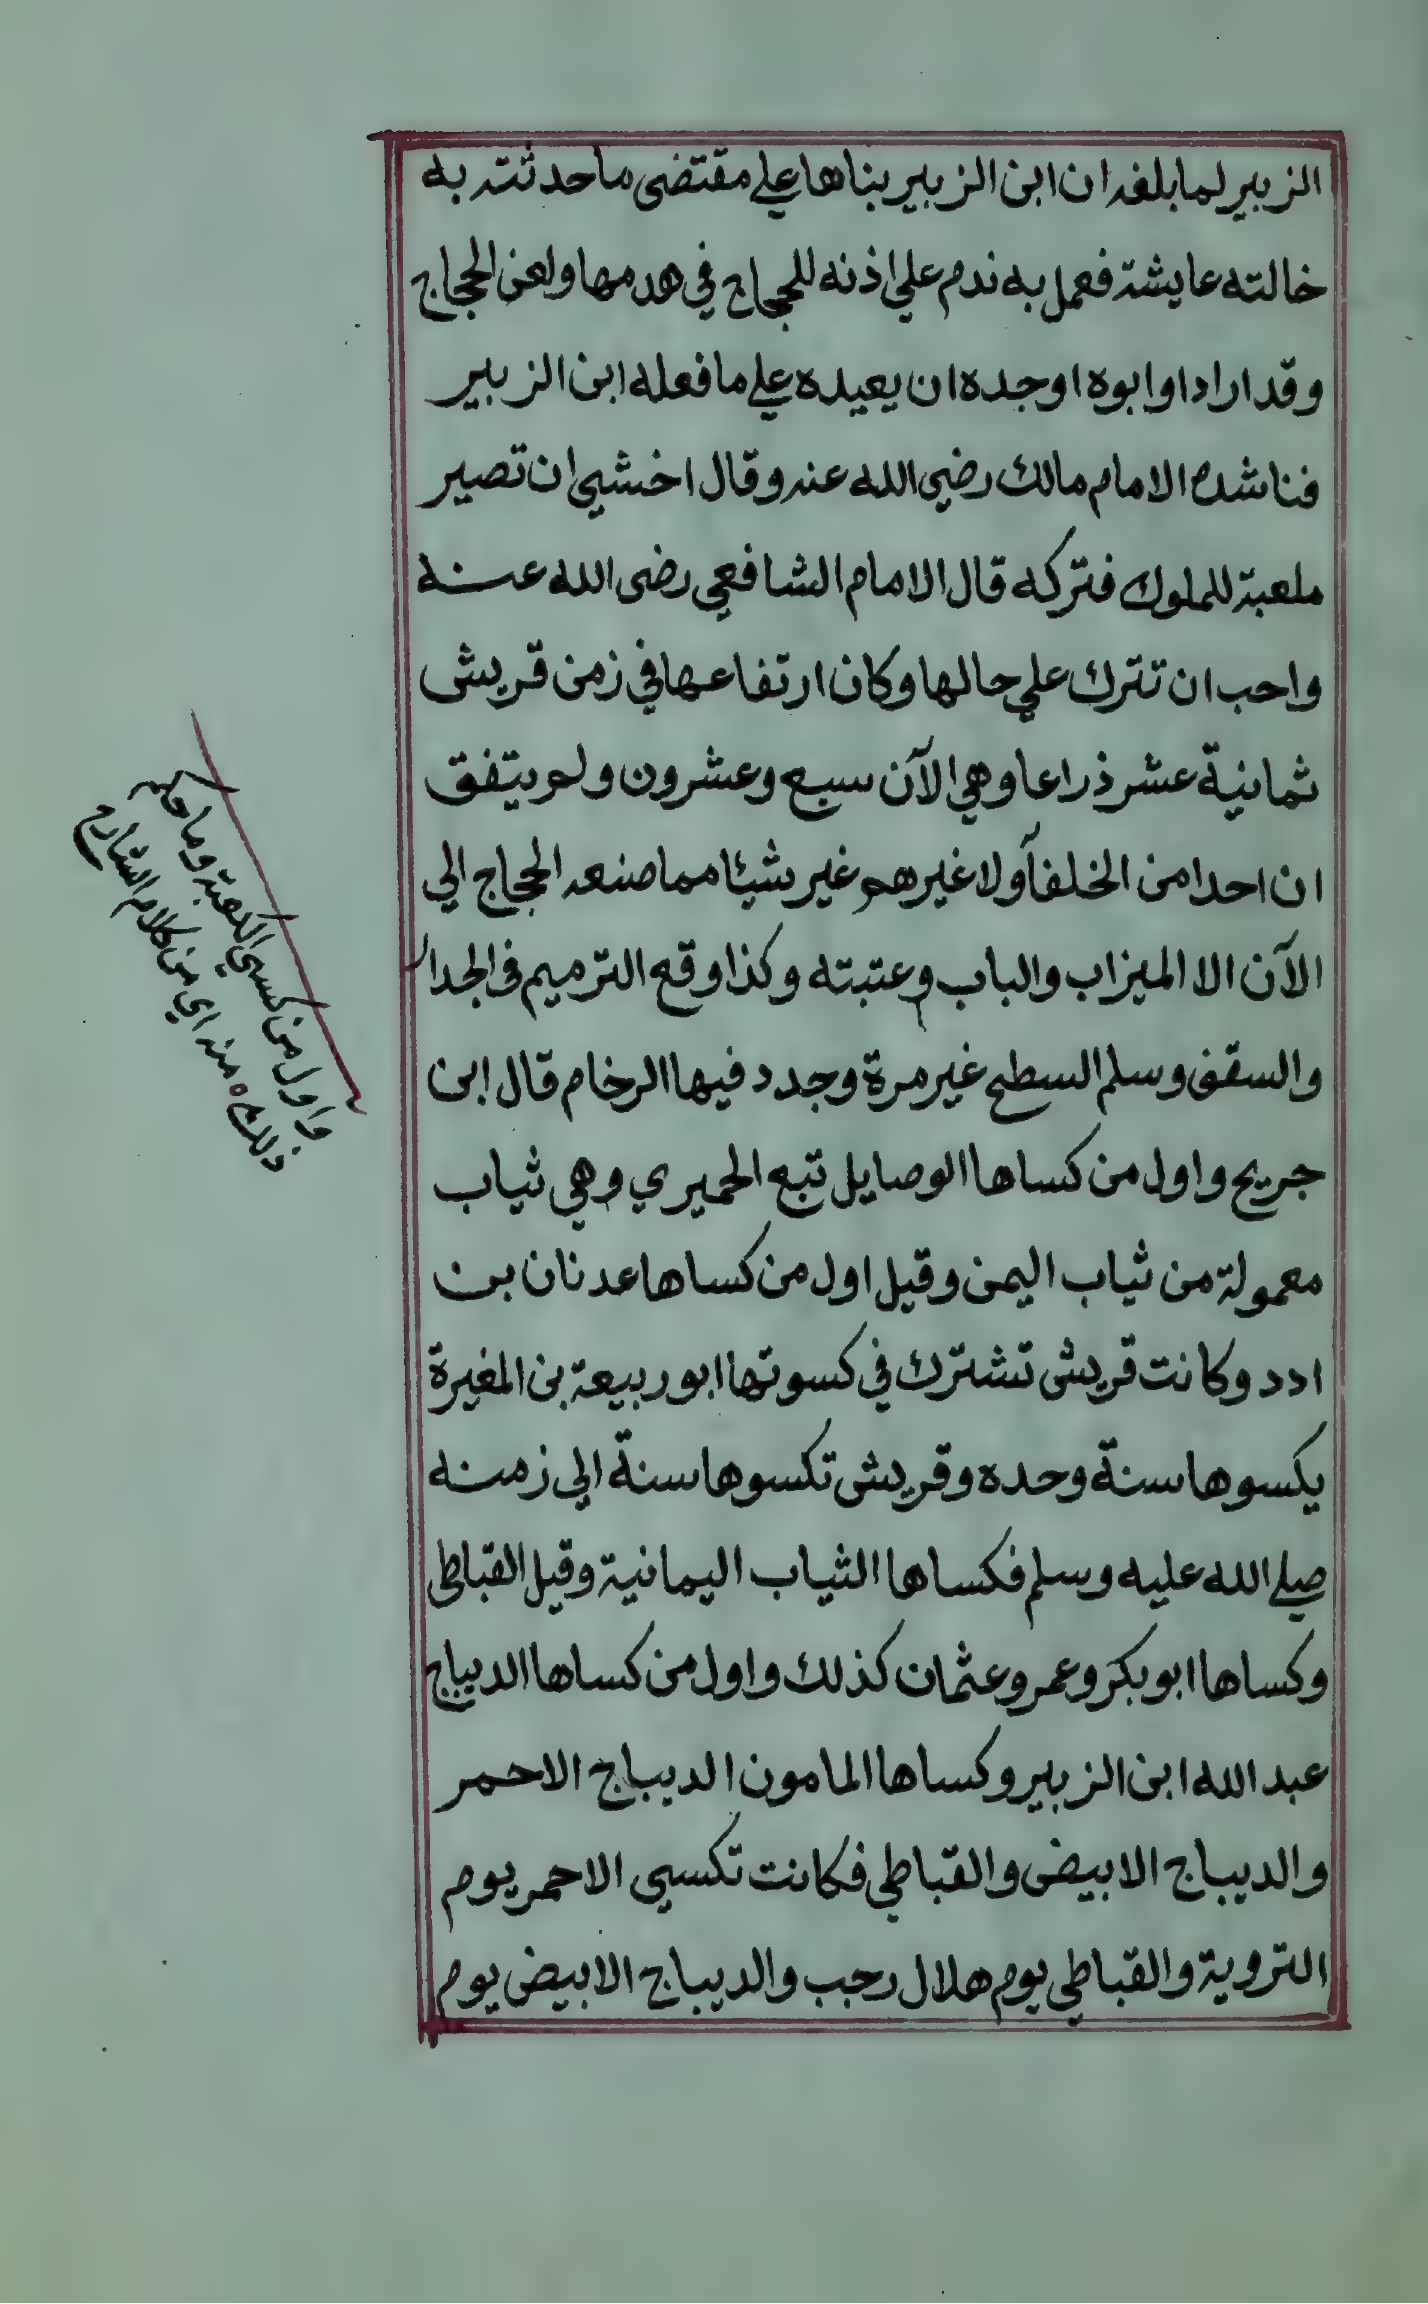 الزبير لما بلغه ان ابن الزبير بناها علي مقتضى ما حدثته به
خالته عايشة فعمل به ندم علي اذنه للحجاج في هدمها ولعن الحجاج
وقد اراد او ابوه او جده ان يعيده علي ما فعله ابن الزبير
فناشده الامام مالك رضي الله عنه وقال اخشي ان تصير
ملعبة للملوك فتركه قال الامام الشافعي رضى الله عنه
واحب ان تترك علي حالها وكان ارتفاعها في زمن قريش
ثمانية عشر ذراعا وهي الآن سبع وعشرون ولم يتفق
ان احدا من الخلفآ ولا غيرهم غير شيئا مما صنعه الحجاج الي
الآن الا الميزاب والباب وعتبته وكذا وقع الترميم في الجدار
والسقف وسلم السطح غير مرة وجدد فيها الرخام قال ابن
جريج واول من كساها الوصايل تبع الحميري وهي ثياب
معمولة من ثياب اليمن وقيل اول من كساها عدنان بن
ادد وكانت قريش تشترك في كسوتها ابو ربيعة بن المغيرة
يكسوها سنة وحده وقريش تكسوها سنة الي زمنه
صلي الله عليه وسلم فكساها الثياب اليمانية وقيل القباطى
وكساها ابو بكر وعمر وعثمان كذلك واول من كساها الديباج
عبد الله ابن الزبير وكساها المامون الديباج الاحمر
والديباج الابيض والقباطي فكانت تكسي الاحمر يوم
التروية والقباطي يوم هلال رجب والديباج الابيض يوم
واول من كسي الكعبة وما حكم
ذلك ه منه اي من كلام الشارح